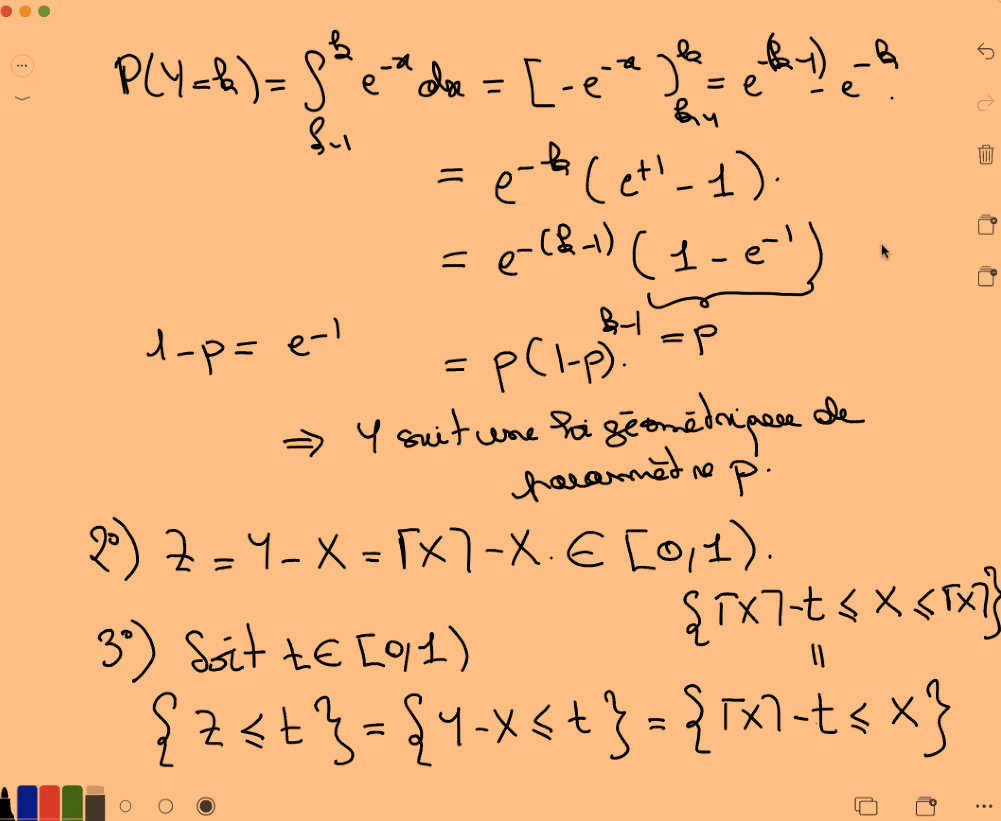 P(Y=k) = ∫_{k-1}^{k} e^{-x} dx = [-e^{-x}]_{k-1}^{k} = e^{-(k-1)} - e^{-k}.
= e^{-k} (e^{+1} - 1).
= e^{-(k-1)} (1 - e^{-1})
1-p = e^{-1}
= p(1-p)^{k-1}. = p
⇒ Y suit une loi géométrique de
paramètre p.
2°) Z = Y - X = ⌈X⌉ - X. ∈ [0,1).
{⌈X⌉-t ≤ X ≤ ⌈X⌉}
3°) Soit t ∈ [0,1)
=
{Z ≤ t} = {Y-X ≤ t} = {⌈X⌉-t ≤ X}